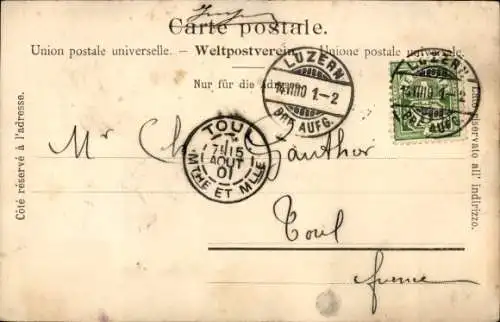 Carte postale.
Union postale universelle. — Weltpostverein. — Unione postale universale.
Nur für die Adresse.
LUZERN
1–2
BRF. AUFG.
LUZERN
BRF. AUFG.
TOUL
7 15
AOUT
01
MTHE ET MLLE
Mr Ch Gauthor
Toul
France
Côté réservé à l'adresse.
Lato riservato all' indirizzo.